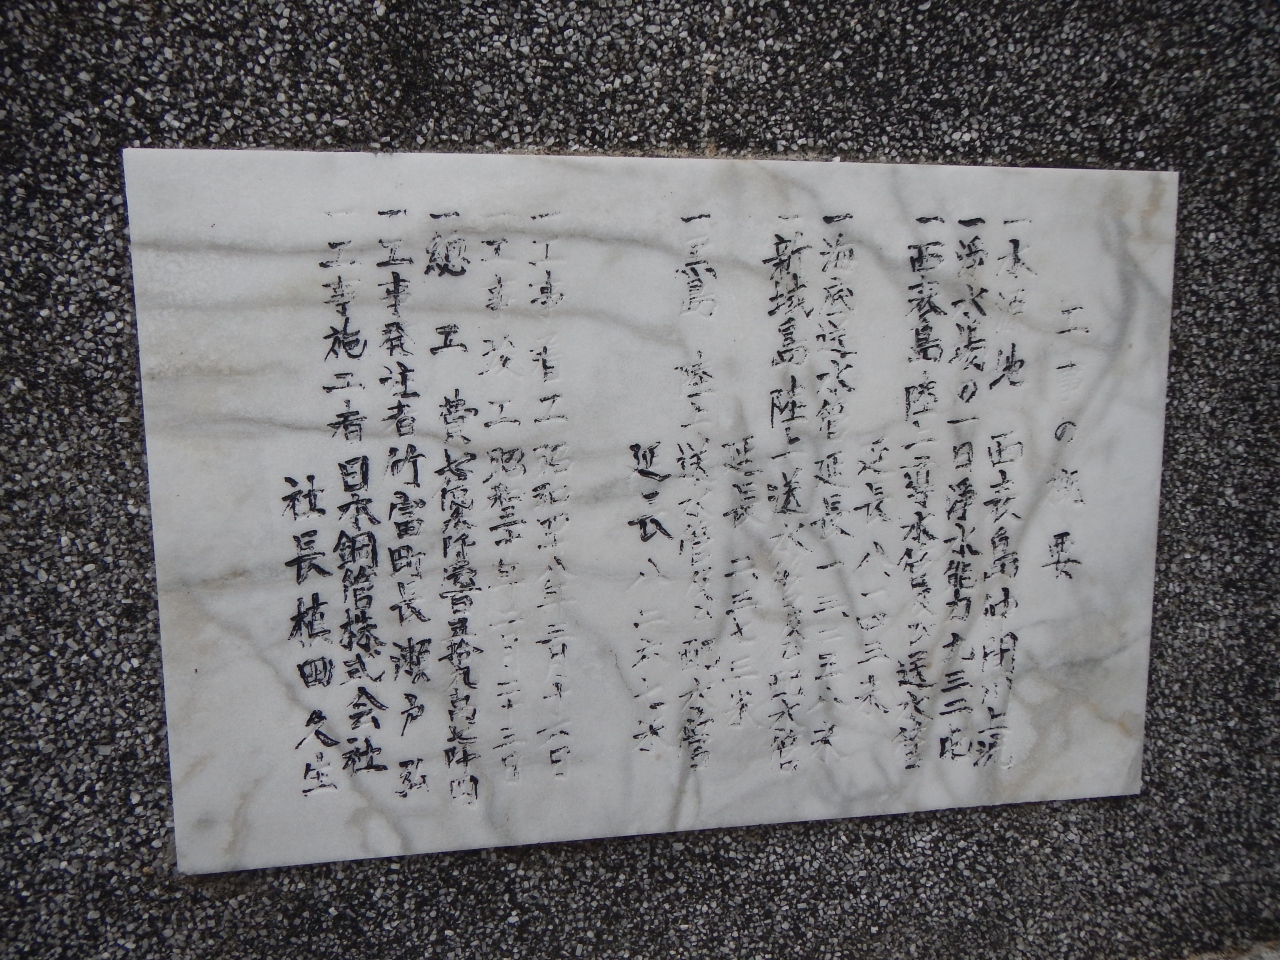 工事の概要
一水源地 西表島仲間川上流
一浄水場の一日浄水能力九三二屯
一西表島陸上導水管及び送水管
延長八一四三米
一海底送水管延長一三二五八米
一新城島陸上送水管及び配水管
延長 二三七三米
一黒島 陸上送水管及び配水管
延長 八二六一米
一工事着工昭和四八年二月十六日
一工事竣工昭和五十年二月二十二日
一總工費
一工事発注者竹富町長瀬戸弘
一工事施工者日本鋼管株式会社
社長槙田久生